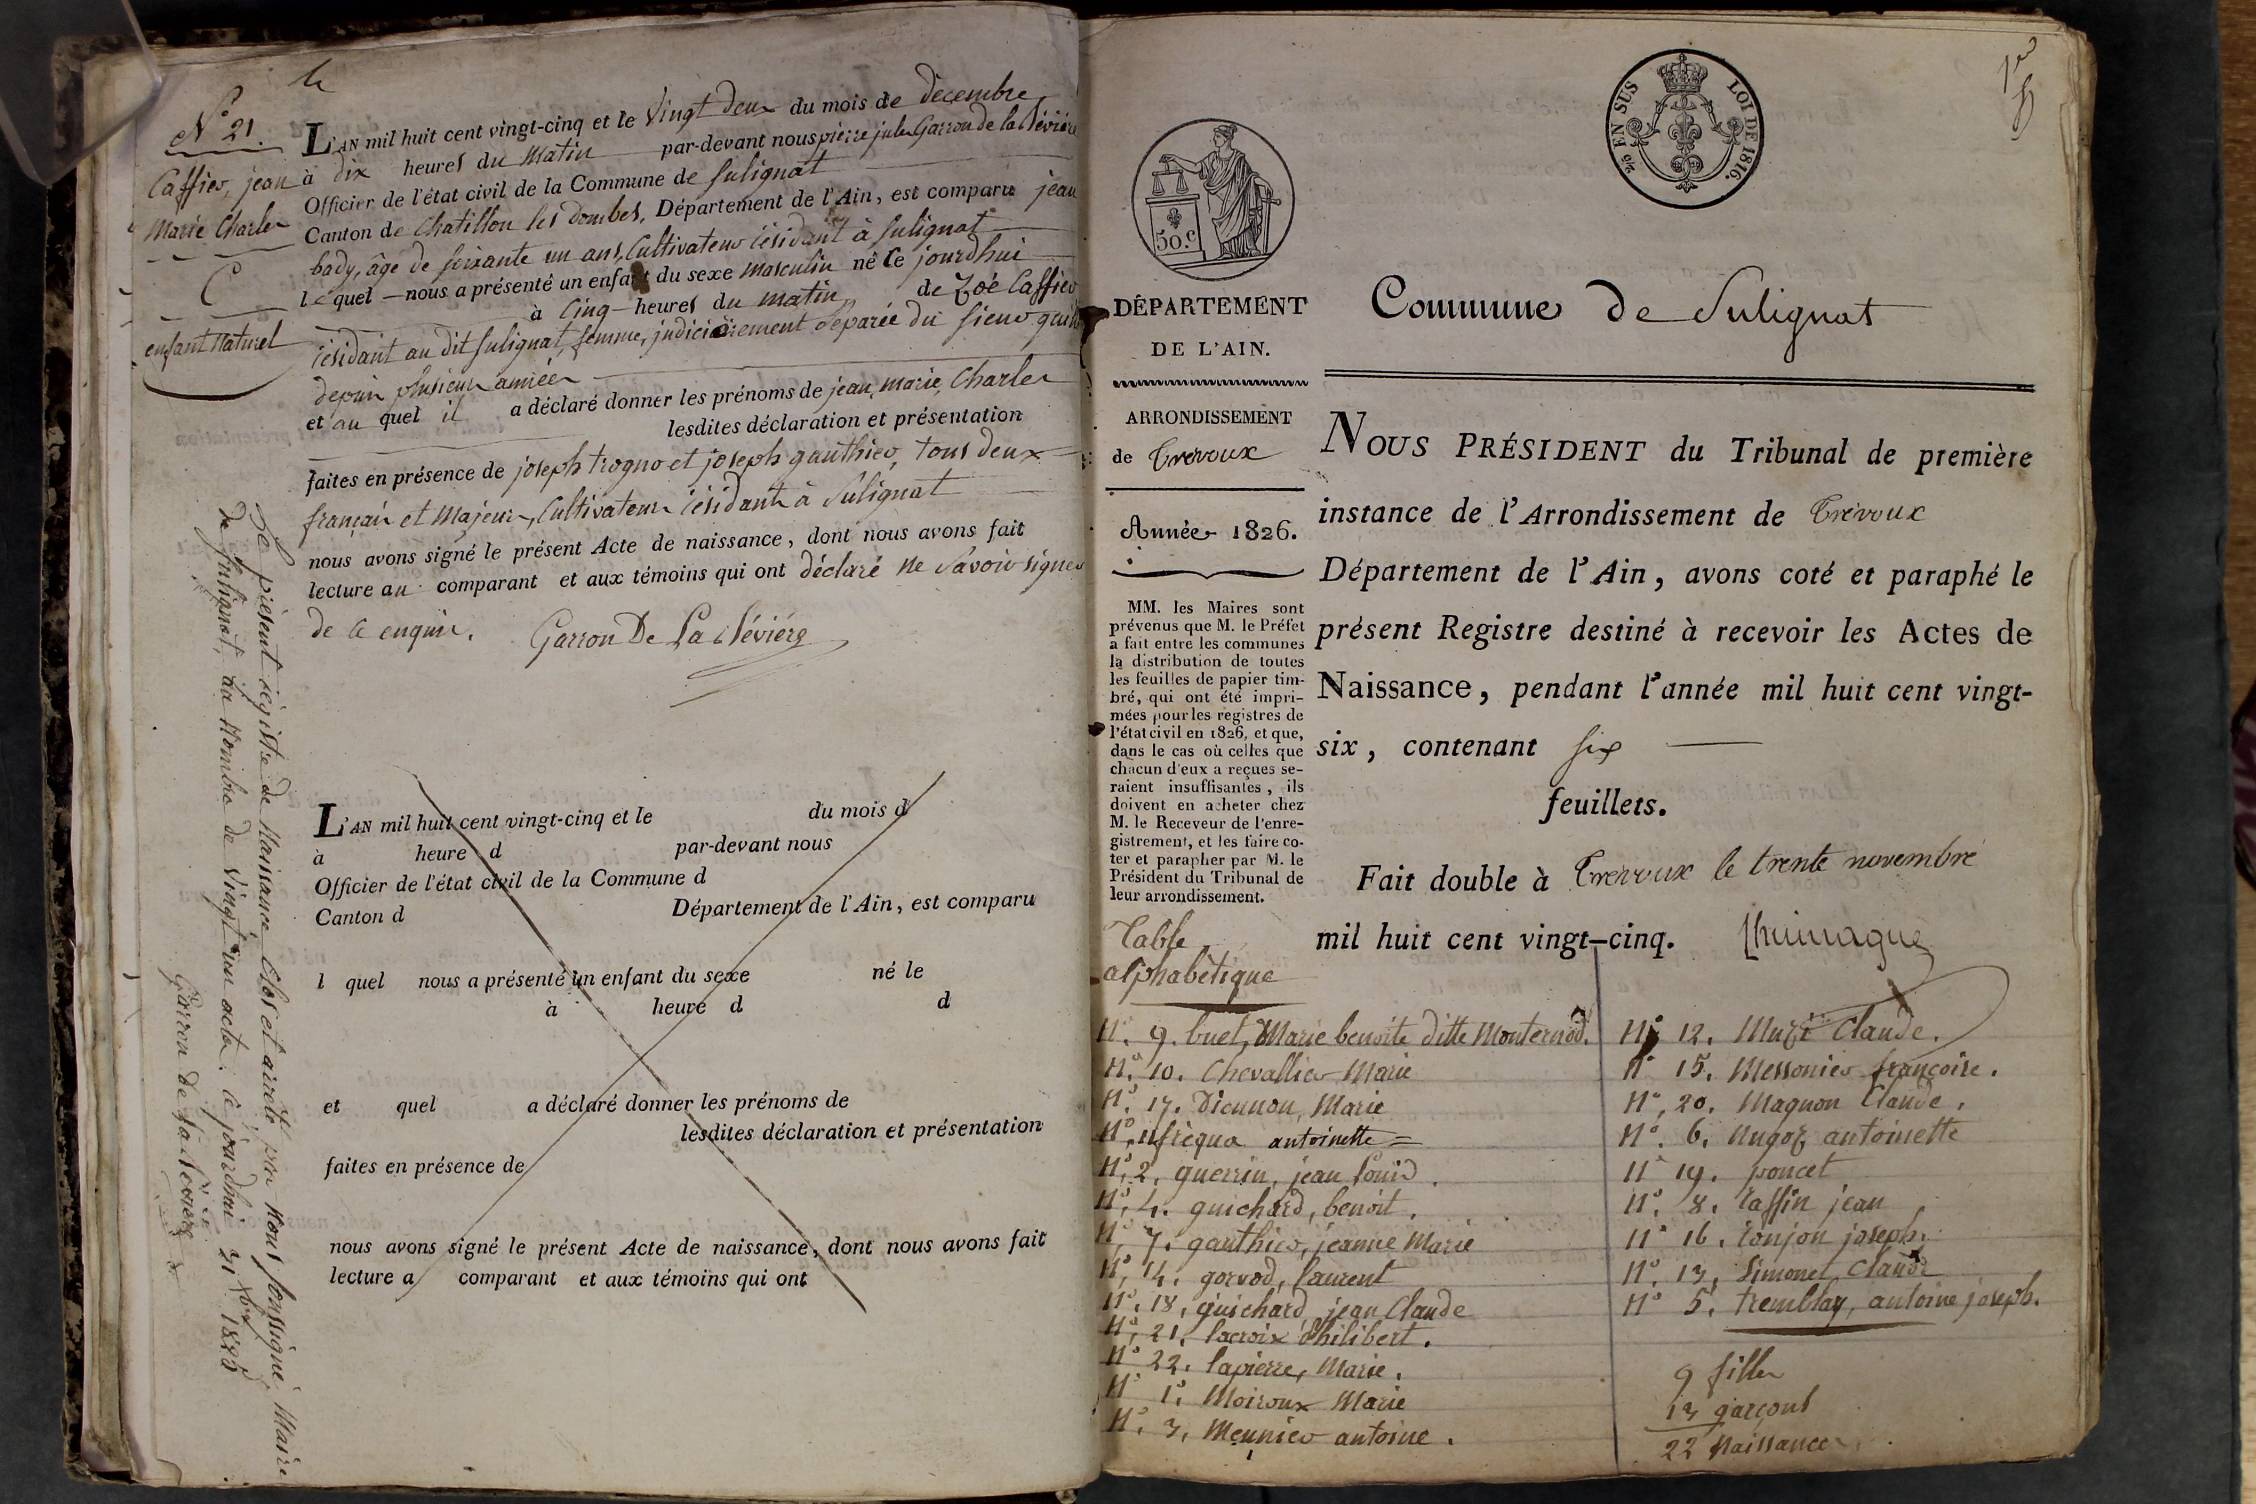 N.° 21.
Caffier, jean
Marie Charles
C
enfant naturel
L'AN mil huit cent vingt-cinq et le Vingt deux du mois de decembre
à dix heures du Matin par-devant nous pierre jules Garron de la Bévière
Officier de l'état civil de la Commune de Sulignat
Canton de Chatillon les dombes, Département de l'Ain, est comparu jean
bady, âgé de soixante un ans, Cultivateur résidant à Sulignat
lequel nous a présenté un enfant du sexe masculin né le jourdhui
à Cinq heures du matin, de Zoé Caffier
résidant au dit Sulignat, femme, judiciairement séparée du sieur
depuis plusieurs années
et au quel il a déclaré donner les prénoms de jean, marie, Charles
lesdites déclaration et présentation
faites en présence de joseph trogno et joseph gauthier, tous deux
français et Majeurs, Cultivateurs résidants à Sulignat
nous avons signé le présent Acte de naissance, dont nous avons fait
lecture au comparant et aux témoins qui ont déclaré ne Savoir signer
de ce enquis. Garron De La Bévière
L'AN mil huit cent vingt-cinq et le du mois d
à heure d par-devant nous
Officier de l'état civil de la Commune d
Canton d Département de l'Ain, est comparu
l quel nous a présenté un enfant du sexe né le
à heure d d
et quel a déclaré donner les prénoms de
lesdites déclaration et présentation
faites en présence de
nous avons signé le présent Acte de naissance, dont nous avons fait
lecture a comparant et aux témoins qui ont
Le présent registre de Naissance Clos et arrêté par Nous soussigné, Maire
de Sulignat, au Nombre de Vingt un acte, ce jourdhui 31 Xbre 1825
Garron de la Bévière
2/10 EN SUS LOI DE 1816.
50.c
DÉPARTEMENT
DE L'AIN.
ARRONDISSEMENT
de Trévoux
Année 1826.
MM. les Maires sont
prévenus que M. le Préfet
a fait entre les communes
la distribution de toutes
les feuilles de papier tim-
bré, qui ont été impri-
mées pour les registres de
l'état civil en 1826, et que,
dans le cas où celles que
chacun d'eux a reçues se-
raient insuffisantes, ils
doivent en acheter chez
M. le Receveur de l'enre-
gistrement, et les faire co-
ter et parapher par M. le
Président du Tribunal de
leur arrondissement.
Commune de Sulignat
NOUS PRÉSIDENT du Tribunal de première
instance de l'Arrondissement de Trévoux
Département de l'Ain, avons coté et paraphé le
présent Registre destiné à recevoir les Actes de
Naissance, pendant l'année mil huit cent vingt-
six, contenant six
feuillets.
Fait double à Trévoux le trente novembre
mil huit cent vingt-cinq.
Table
alphabétique
N.° 9. buet, Marie benoite ditte Monternod.
N.° 10. Chevallier Marie
N.° 17. Dieunon, Marie
N.° 11 frequa antoinette
N.° 2. guerrin, jean Louis.
N.° 4. guichard, benoit.
N.° 7. gauthier, jeanne Marie
N.° 14. gorvod, laurent
N.° 18, guichard, jean Claude
N.° 21. lacroix Philibert.
N.° 22. lapierre, Marie.
N.° 1. Moiroux Marie
N.° 3, Meunier antoine.
N.° 12. Muzi Claude.
N.° 15. Messonier françoise.
N.° 20. Magnon Claude.
N.° 6. Nugoz antoinette
N.° 19. poncet
N.° 8. raffin jean
N.° 16. ronjon joseph.
N.° 13, Simonet Claude
N.° 5. tremblay, antoine joseph.
9 filles
13 garçons
22 Naissances